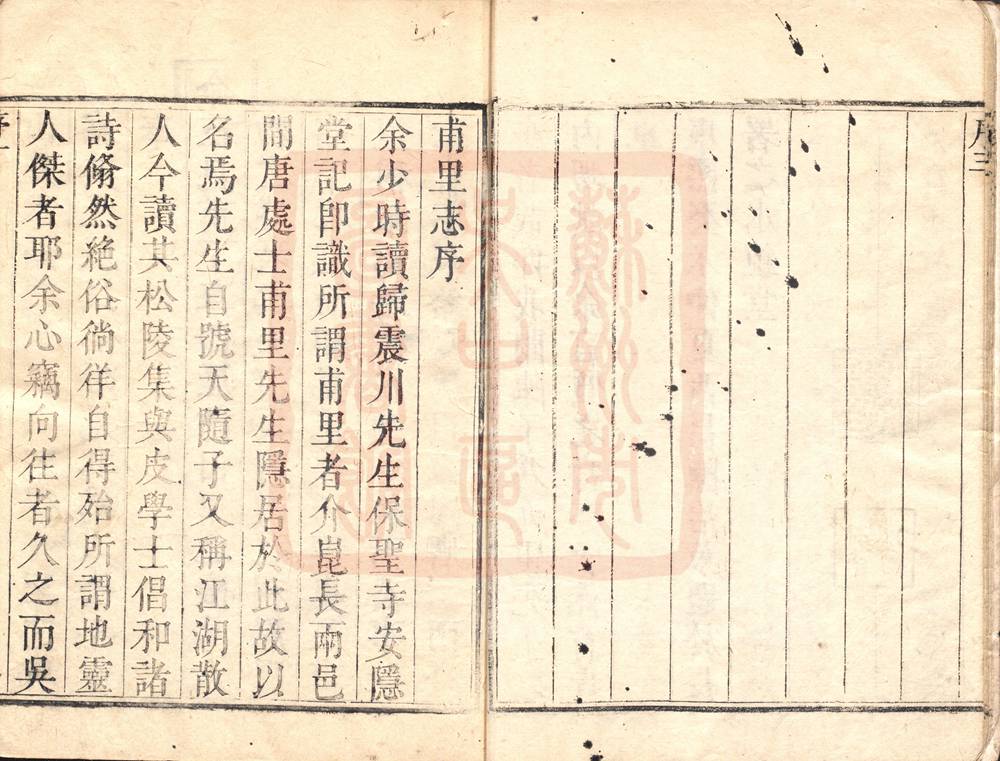 序三
甫里志序
余少時讀歸震川先生保聖寺安隱
堂記卽識所謂甫里者介崑長兩邑
間唐處士甫里先生隱居於此故以
名焉先生自號天隨子又稱江湖散
人今讀其松陵集與皮學士倡和諸
詩翛然絶俗徜徉自得殆所謂地靈
人傑者耶余心竊向往者久之而吳